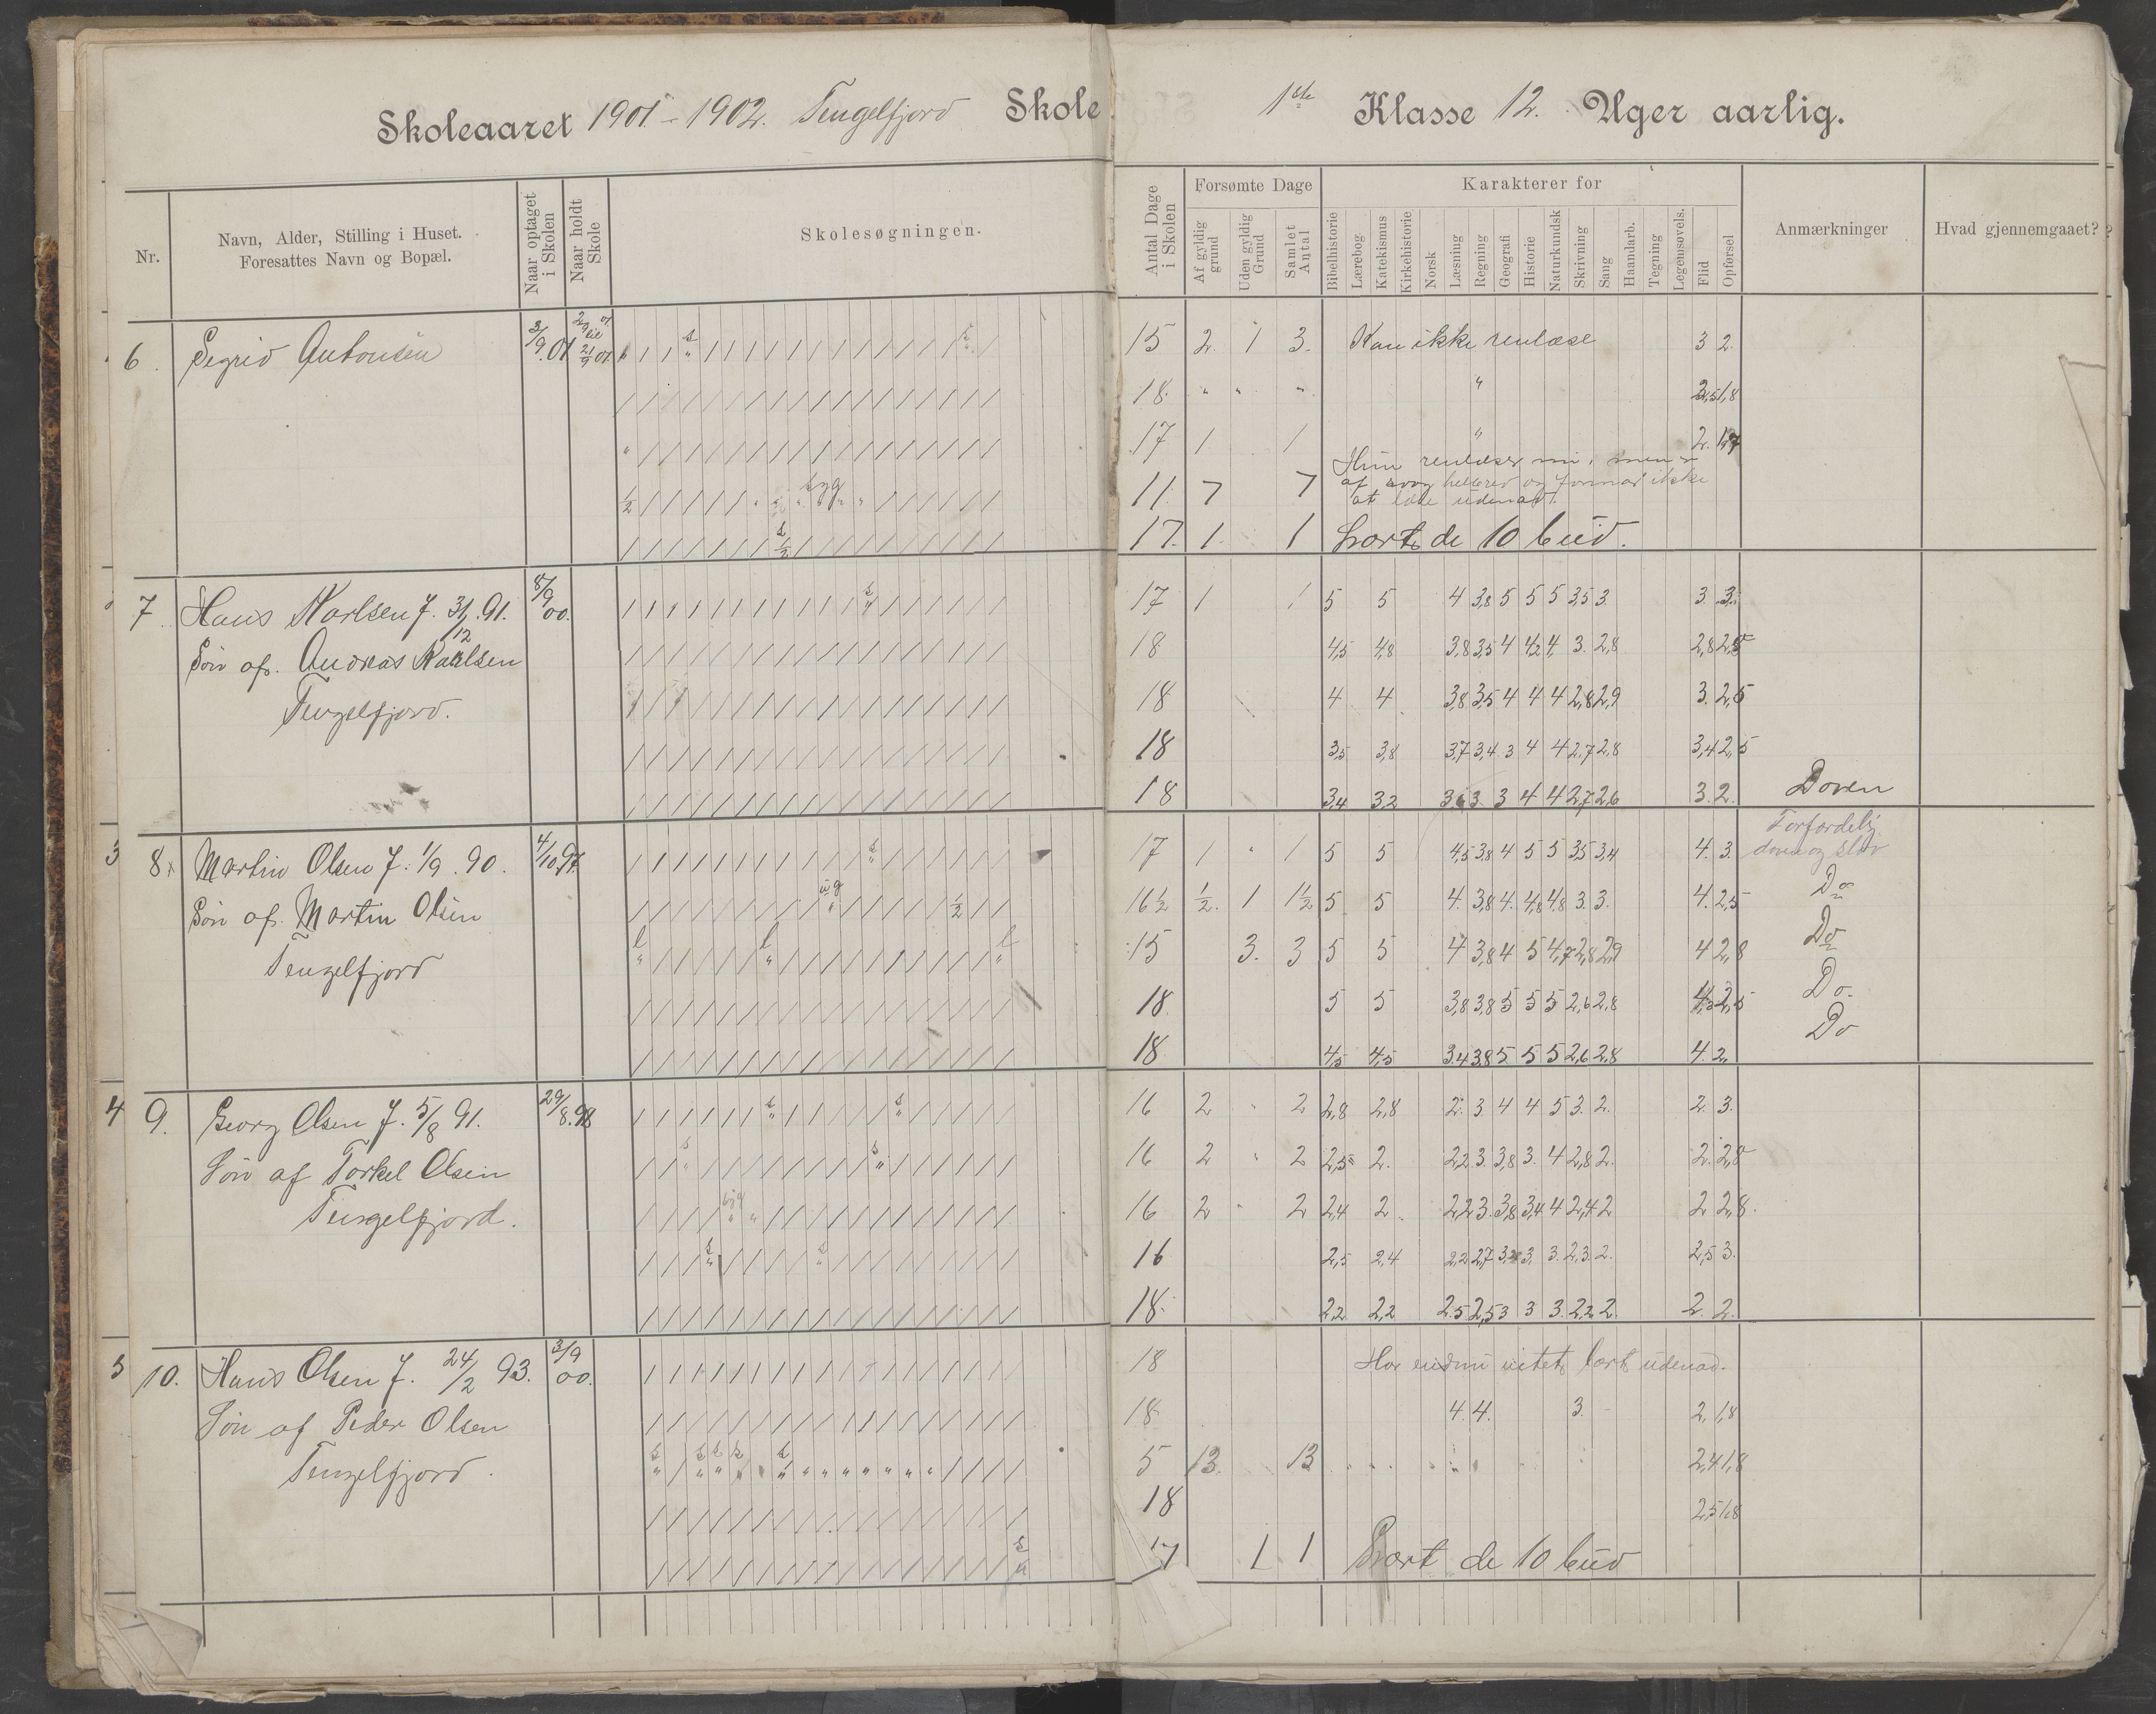 Skoleaaret 1901 - 1902. Tengelfjord Skole
1ste Klasse 12. Uger aarlig.
Nr.
Navn, Alder, Stilling i Huset.
Foresattes Navn og Bopæl.
Naar optaget
i Skolen
Naar holdt
Skole
Skolesøgningen.
Antal Dage
i Skolen
Forsømte Dage
Af gyldig
grund
Uden gyldig
Grund
Samlet
Antal
Karakterer for
Bibelhistorie
Lærebog
Katekismus
Kirkehistorie
Norsk
Læsning
Regning
Geografi
Historie
Naturkundsk
Skrivning
Sang
Haandarb.
Tegning
Legemsøvels.
Flid
Opførsel
Anmærkninger
Hvad gjennemgaaet?
6. Sigrid Antonsen 3/9.01 2/9 01 til 21/9 01
15 2. 1 3. Kan ikke renlæse 3 2.
18. " " " " 2,5 1,8
syg
17 1 1 " 2. 1,7
11 7 7 Hun renlæser nu, men er
af svag helbred og formaar ikke
at læse udenad.
17. 1. 1 Lært de 10 bud.
7. Hans Karlsen f. 31/12.91. 8/9 00.
Søn af. Andreas Karlsen
Tengelfjord.
17 1 1 5 5 4 3,8 5 5 5 3,5 3. 3. 3.
18 4,5 4,8 3,8 3,5 4 4,2 4, 3. 2,8 2,8 2,5
18 4 4 3,8 3,5 4 4 4 2,8 2,9 3. 2,5
18 3,5 3,8 3,7 3,4 3 4 4 2,7 2,8 3,4 2,5
18 3,4 3,2 3,6 3. 3 4 4 2,7 2,6 3. 2. Doven
3 8x Martin Olsen f. 1/9. 90. 4/10.97.
Søn af. Martin Olsen
Tengelfjord
17 1 " 1 5 5 4,5 3,8 4 5 5 3,5 3,4 4. 3. Forfærdelig
doven og sløv
16 1/2 1/2. 1 1 1/2 5 5 4. 3,8 4. 4,8 4,8 3. 3. 4. 2,5 Do
15 3. 3 5 5 4 3,8 4 5 4,7 2,8 2,9 4 2,8 Do
18. 5 5 3,8 3,8 5 5 5 2,6 2,8 4,5 2,5 Do.
18 4,5 4,5 3,4 3,8 5 5 5 2,6 2,8 4. 2, Do
4 9. Georg Olsen f. 5/8 91. 29/8.98
Søn af Torkel Olsen
Tengelfjord.
16 2 " 2 2,8 2,8 2. 3 4 4 5 3. 2. 2. 3.
16 2 " 2 2,5 2. 2,2 3. 3,8 3. 4 2,8 2. 2. 2,8
16 2 " 2 2,4 2. 2,2 3. 3,8 3,4 4 2,4 2 2 2,8.
16 2,5 2,4 2,2 2,7 3,2 3. 3. 2,3. 2. 2,5 3.
18. 2,2 2,2 2,5 2,5 3 3 3. 2,2 2. 2. 2.
5 10. Hans Olsen f. 24/2 93. 3/9 00.
Søn af Peder Olsen
Tengelfjord.
18 Har endnu intet lært udenad.
18 4. 4. 3. 2, 1,8
5 13. 13. 2,4 1,8
18 2,5 1,8
17 1 1 Lært de 10 bud